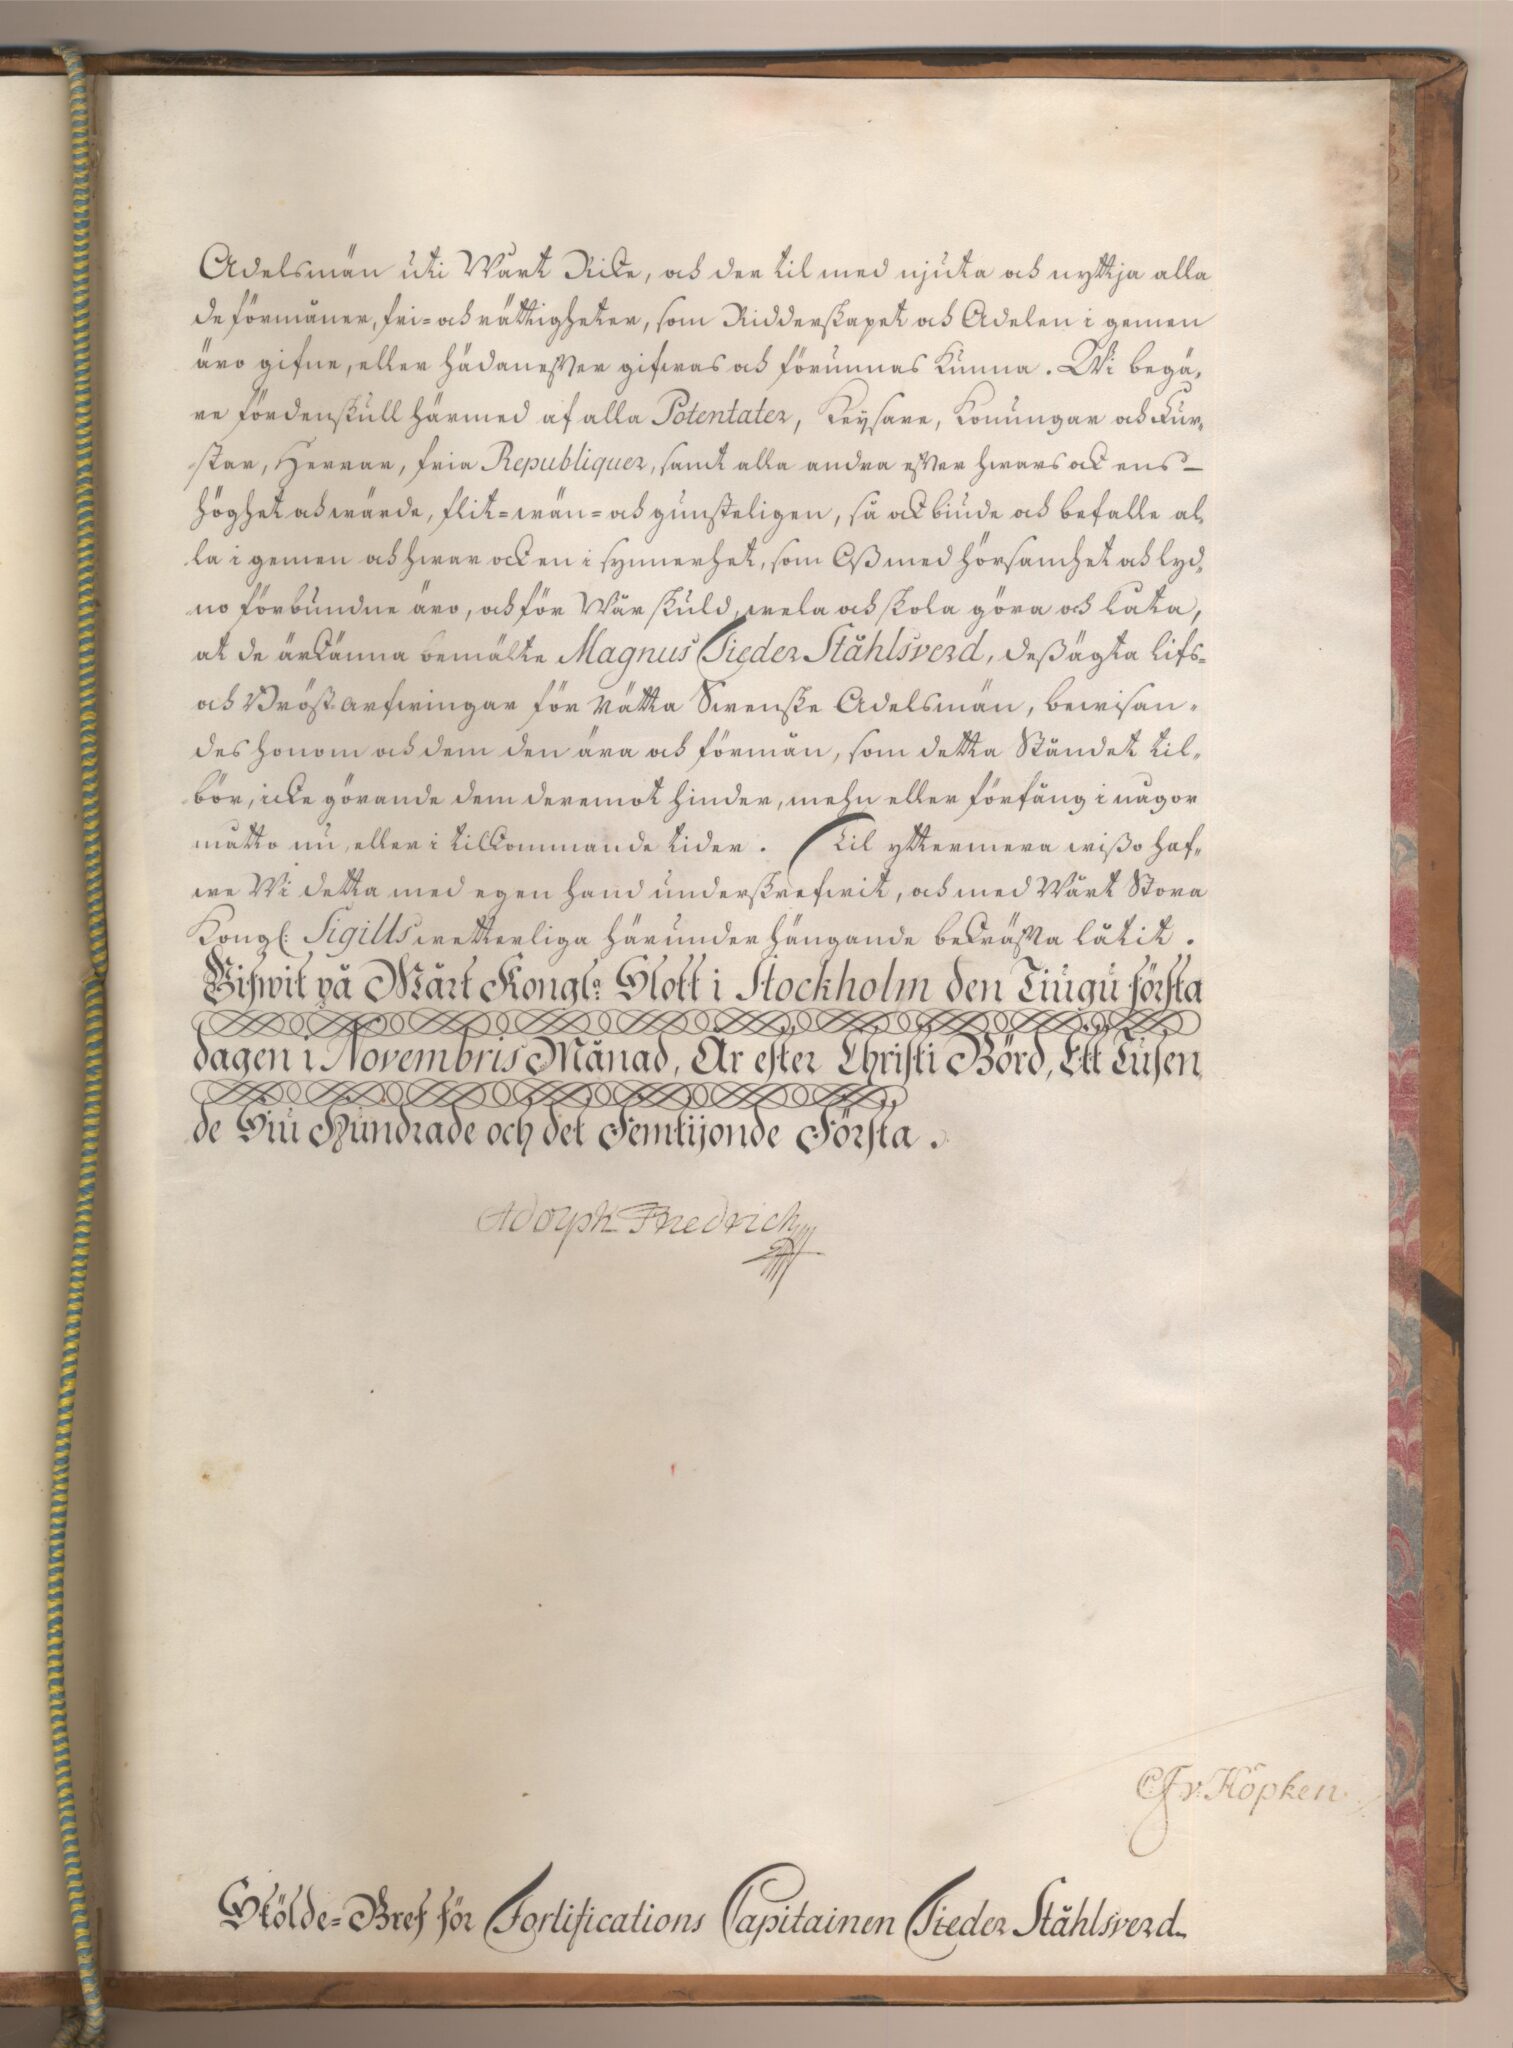 Adelsmän uti Wårt Rike, och der til med njuta och nyttja alla
de förmåner, fri= och rättigheter, som Ridderskapet och Adelen i gemen
äro gifne, eller hädanefter gifwas och förunnas kunna. Wi begä-
re fördenskull härmed af alla Potentater, Keysare, Konungar och Fur-
star, Herrar, fria Republiquer, samt alla andra efter hwars ock ens
höghet och wärde, flit= wän= och gunsteligen, så ock biude och befalle al-
la i gemen och hwar ock en i synnerhet, som Oß med hörsamhet och lyd-
no förbundne äro, och för Wår skuld, wela och skola göra och låta,
at de ärkänna bemälte Magnus Sieder Ståhlsverd, deß ägta lifs-
och Bröst arfwingar för rätta Swenske Adelsmän, bewisan-
des honom och dem den ära och förmån, som detta Ståndet til-
bör, icke görande dem deremot hinder, mehn eller förfång i någor
måtto nu, eller i tilkommande tider. Til yttermera wißo haf-
we Wi detta med egen hand underskrefwit, och med Wårt Stora
Kongl: Sigills wetterliga härunder hängande bekräfta låtit.
Gifwit på Wårt Kongl:a Slott i Stockholm den Tiugu första
dagen i Novembris Månad, År efter Christi Börd, Ett Tusen,
de Siu Hundrade och det Femtijonde Första.
Adolph Friedrich
CFv. Höpken
Skölde=Bref för Fortifications Capitainen Sieder Ståhlsverd